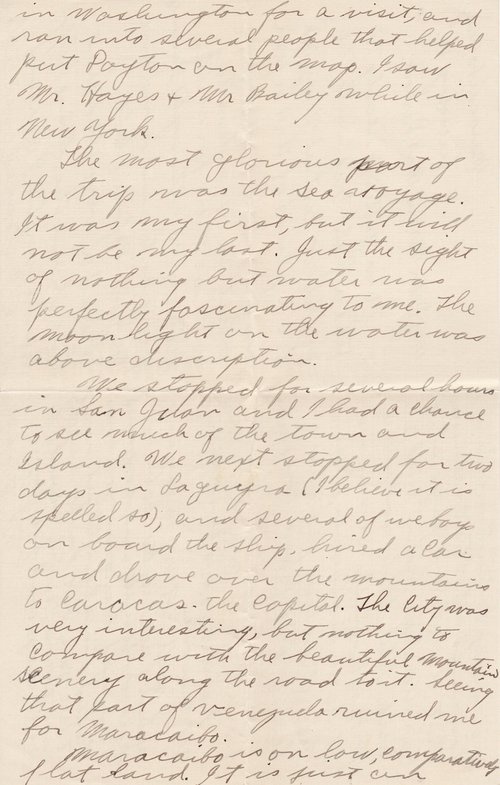 in Washington for a visit, and
ran into several people that helped
put Dayton on the map. I saw
Mr. Hayes + Mr Bailey while in
New York.
The most glorious part of
the trip was the sea voyage.
It was my first, but it will
not be my last. Just the sight
of nothing but water was
perfectly fascinating to me. The
moon light on the water was
above discription.
We stopped for several hours
in San Juan and I had a chance
to see much of the town and
Island. We next stopped for two
days in Laguayra (I believe it is
spelled so), and several of we boys
on board the ship, hired a car
and drove over the mountains
to Caracas. the Capital. The City was
very interesting, but nothing to
compare with the beautiful mountain
scenery along the road to it. Seeing
that part of Venezuda ruined me
for Maracaibo.
Maracaibo is on low, comparatively
flat land. It is just an